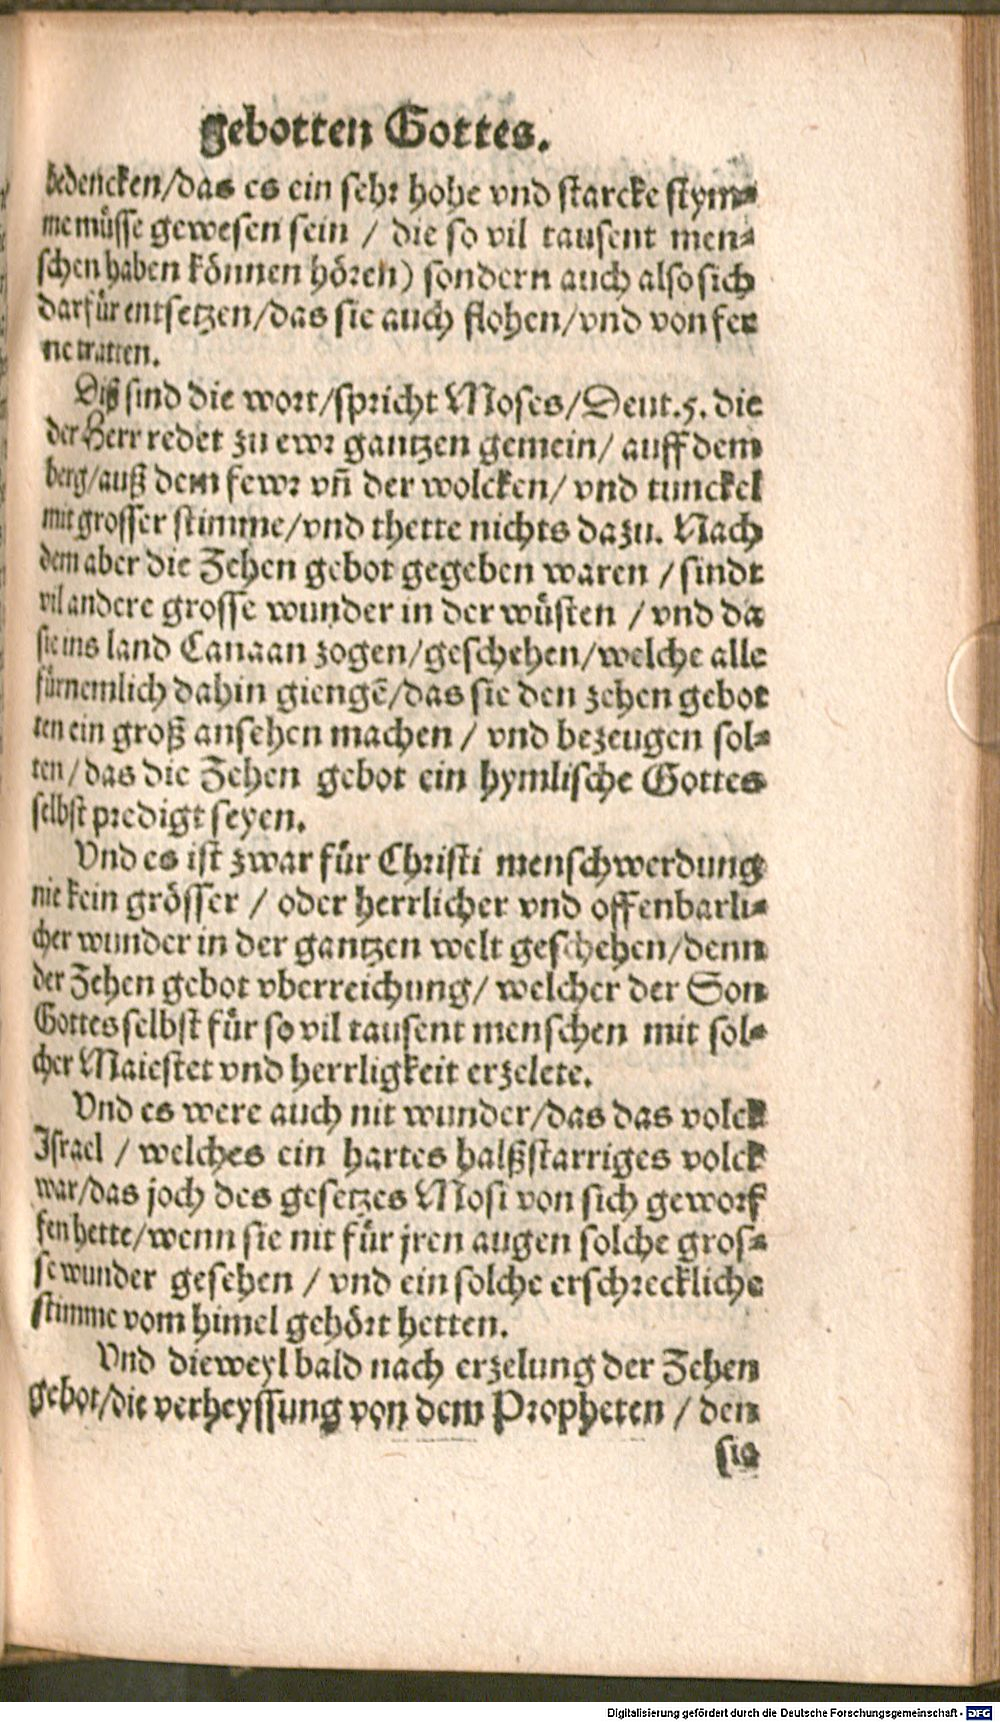 gebotten Gottes.
bedencken/das es ein sehr hohe vnd starcke stym⸗
me müsse gewesen sein / die so vil tausent men⸗
schen haben können hören) sondern auch also sich
darfür entsetzen/das sie auch flohen/vnd von fer
ne tratten.
Diß sind die wort/spricht Moses/Deut.5. die
der Herr redet zu ewr gantzen gemein/ auff dem
berg/auß dem fewr vñ der wolcken/ vnd tunckel
mit grosser stimme/vnd thette nichts dazu. Nach
dem aber die Zehen gebot gegeben waren / sindt
vil andere grosse wunder in der wüsten / vnd da
sie ins land Canaan zogen/geschehen/welche alle
fürnemlich dahin giengē/das sie den zehen gebot
ten ein groß ansehen machen / vnd bezeugen sol⸗
ten/das die Zehen gebot ein hymlische Gottes
selbst predigt seyen.
Vnd es ist zwar für Christi menschwerdung
nie kein grösser / oder herrlicher vnd offenbarli⸗
cher wunder in der gantzen welt geschehen/denn
der Zehen gebot vberreichung/ welcher der Son
Gottes selbst für so vil tausent menschen mit sol⸗
cher Maiestet vnd herrligkeit erzelete.
Vnd es were auch nit wunder/das das volck
Israel / welches ein hartes halßstarriges volck
war/das joch des gesetzes Mosi von sich geworf
fen hette/wenn sie nit für jren augen solche gros⸗
se wunder gesehen / vnd ein solche erschreckliche
stimme vom himel gehört hetten.
Vnd dieweyl bald nach erzelung der Zehen
gebot/die verheyssung von dem Propheten / den
sie
Digitalisierung gefördert durch die Deutsche Forschungsgemeinschaft - DFG